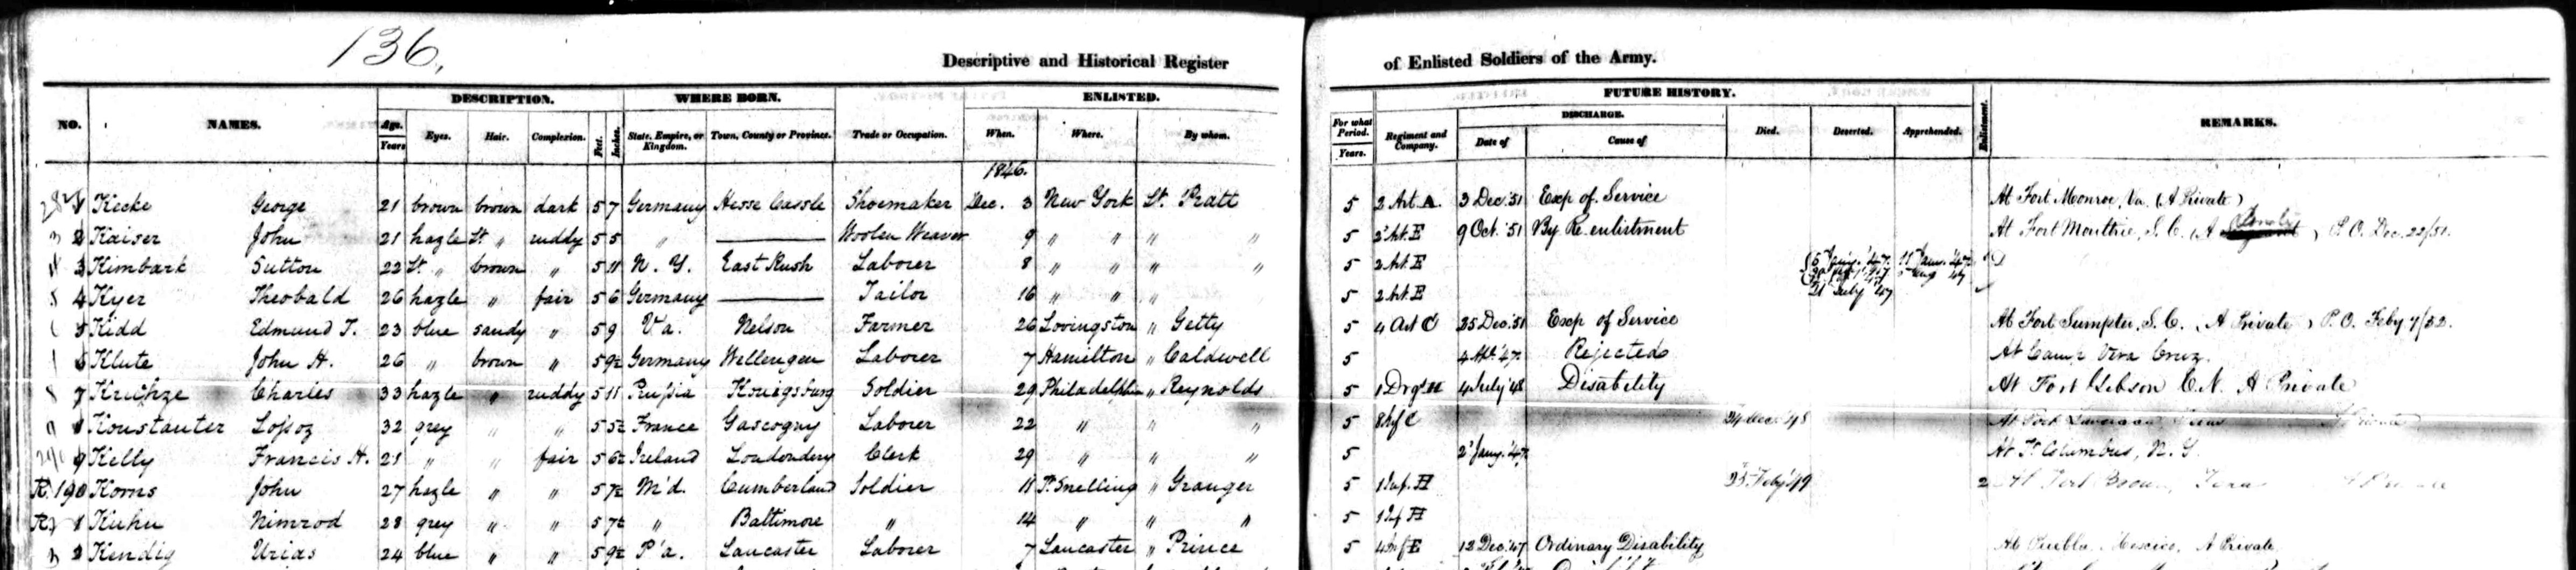 136.
Descriptive and Historical Register of Enlisted Soldiers of the Army.
DESCRIPTION. WHERE BORN. ENLISTED. FUTURE HISTORY.
NO. NAMES. Age. Eyes. Hair. Complexion. Feet. Inches. State, Empire, or Kingdom. Town, County or Province. Trade or Occupation. When. Where. By whom. For what Period. Regiment and Company. DISCHARGE. Died. Deserted. Apprehended. Enlistment. REMARKS.
Years Years. Date of Cause of
1846.
1 Kecke George 21 brown brown dark 5 7 Germany Hesse Cassle Shoemaker Dec. 3 New York Lt. Pratt 5 2 Art A. 3 Dec. '51 Exp of Service At Fort Monroe, Va. (A Private)
2 Kaiser John 21 hazle Lt " ruddy 5 5 " Woolen Weaver 9 " " " " 5 2 Art. E 9 Oct. '51 By Re-enlistment At Fort Moultrie, S.C. (A P.O. Dec. 22/51.
3 Kimbark Sutton 22 Lt. " brown " 5 11 N. Y. East Rush Laborer 8 " " " " 5 2 Art E
4 Kyer Theobald 26 hazle " fair 5 6 Germany Tailor 16 " " " 5 2 Art. E 21 July 47
5 Kidd Edmund T. 23 blue sandy " 5 9 Va. Nelson Farmer 26 Lovingston " Getty 5 4 Art C 25 Dec. '51 Exp of Service At Fort Sumpter, S.C. (A Private) P.O. Feby 7/52.
6 Klute John H. 26 " brown " 5 9½ Germany Wellengen Laborer 7 Hamilton " Caldwell 5 Rejected At Camp Vera Cruz.
7 Charles 33 hazle " ruddy 5 11 Prussia Konigsburg Soldier 29 Philadelphia " Reynolds 5 1 Drgs H 4 July '48 Disability At Fort Gibson C.N. A Private
8 Konstanter 32 grey " " 5 5½ France Gascogny Laborer 22 " " " 5 8 Inf C '48 At Fort
9 Kelly Francis H. 21 " " fair 5 6½ Ireland Londondery Clerk 29 " " " 5 2 Jany. '47 At Ft Columbus, N.Y.
R. 190 Korns John 27 hazle " " 5 7½ M'd. Cumberland Soldier 11 Ft. Snelling " Granger 5 1 Inf. H Feby '49 2 At Fort
1 Kuhn Nimrod 28 grey " " 5 7½ " Baltimore " 14 " " " 5 1 Inf H
2 Kendig Urias 24 blue " " 5 9½ P'a. Lancaster Laborer 7 Lancaster " Prince 5 4 Inf E 12 Dec. '47 Ordinary Disability At Puebla, Mexico, A Private